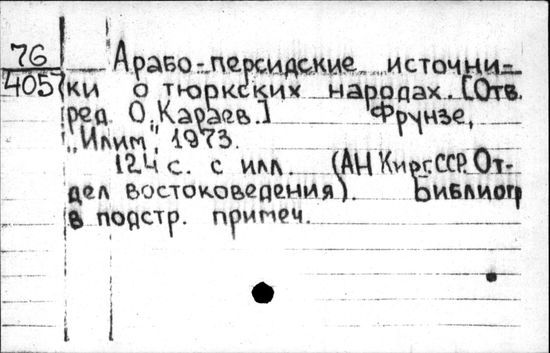 76
4057
Арабо-персидские источни-
ки о тюркских народах. [Отв.
ред О. Караев.] Фрунзе,
„Илим", 1973.
124 с. с илл. (АН Кирг.ССР. От-
дел востоковедения). Библиогр
в подстр. примеч.